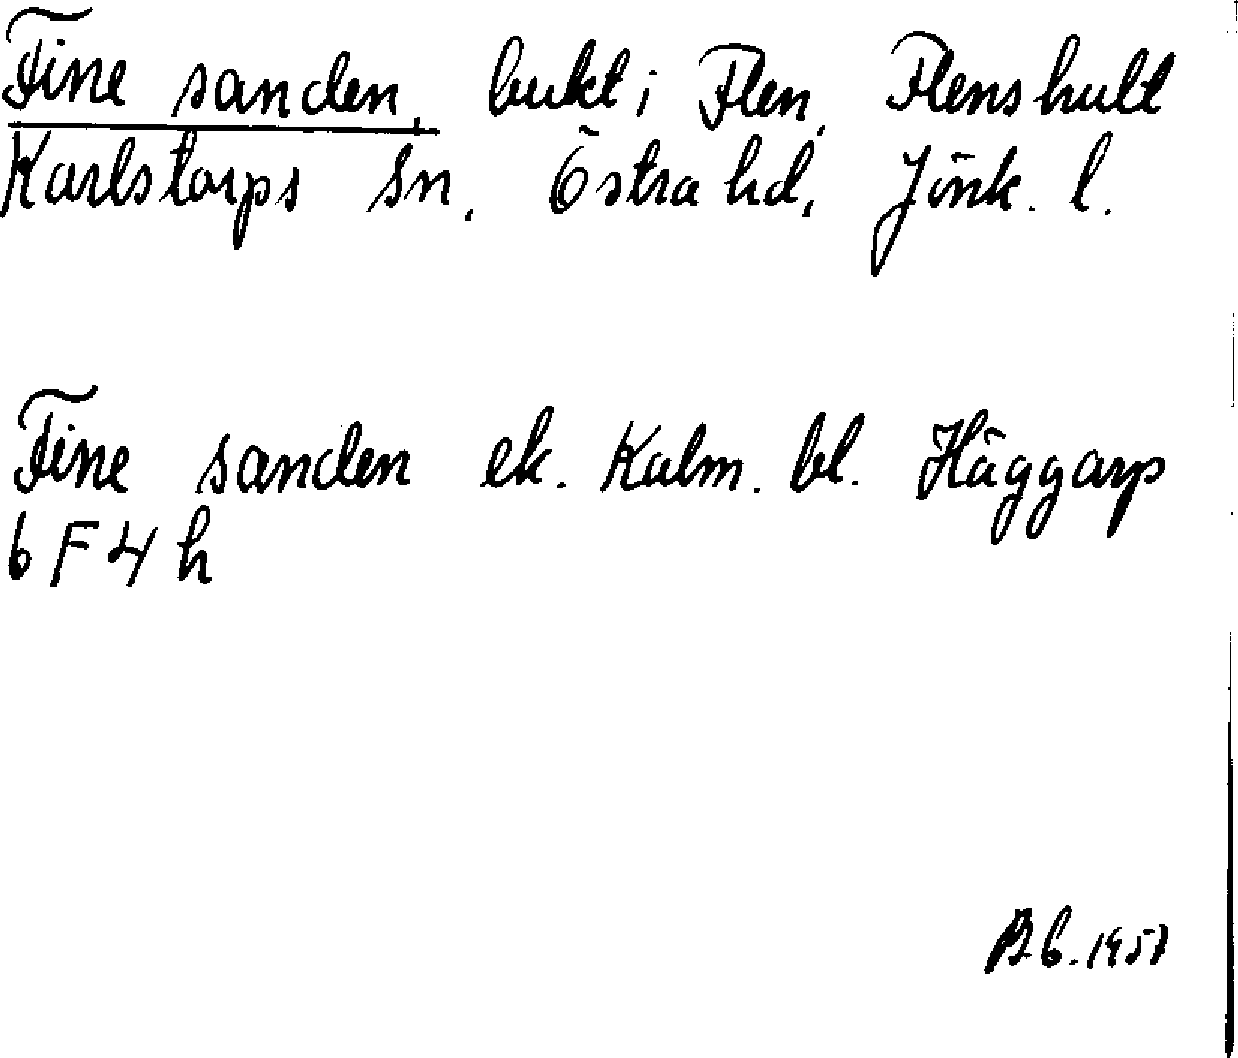 Fine sanden, bukt i Flen, Flenshult
Karlstorps sn, Östra hd, Jönk. l.
Fine sanden ek. Kalm. bl. Häggarp
6 F 4 h